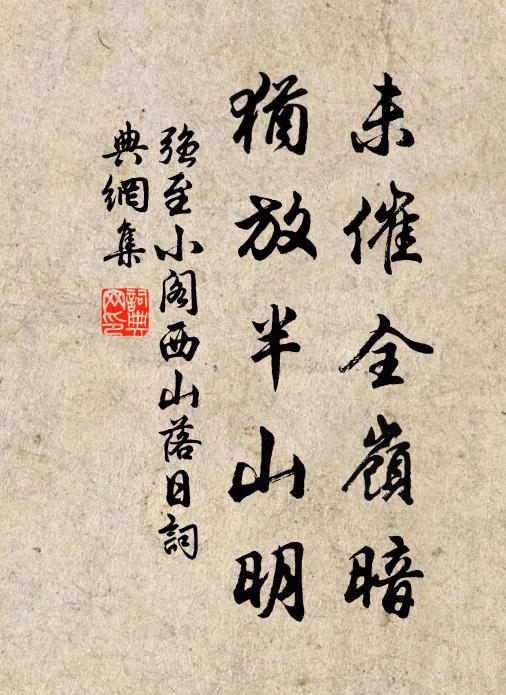 未催全嶺暗
猶放半山明
強至小阁西山落日詞
典網集
詞典網印